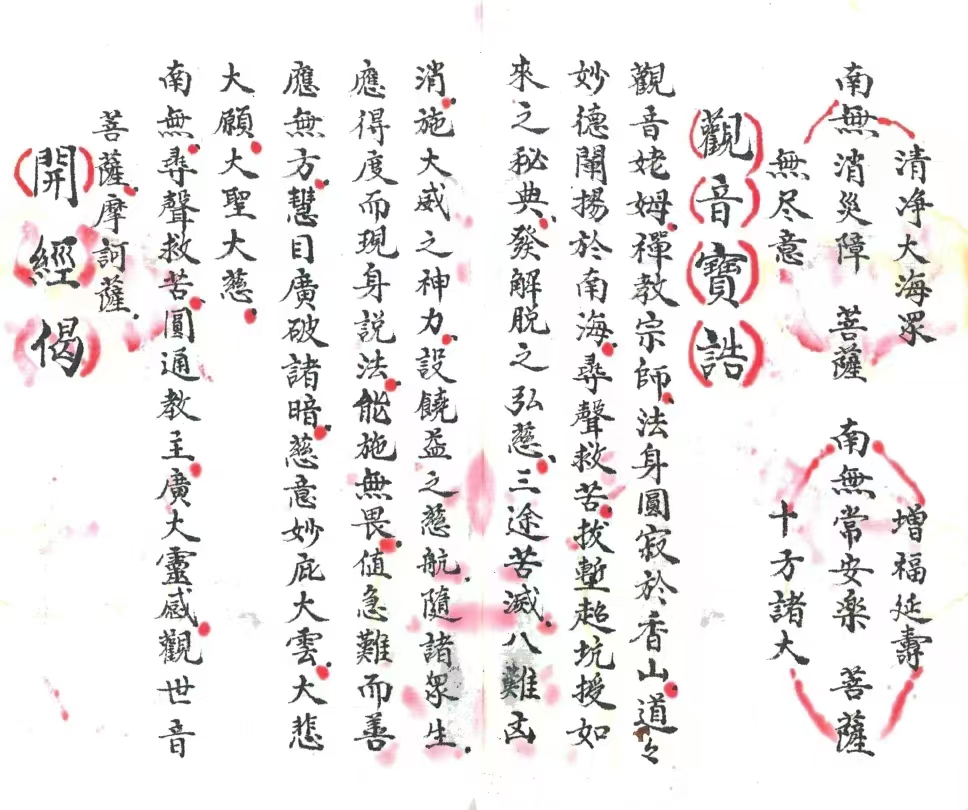 清净大海眾　增福延壽
南無消災障　菩薩　南無常安楽　菩薩
無尽意　十方諸大
觀音寶誥
觀音姥姆禪教宗師法身圓寂於香山道々
妙德闡揚於南海尋聲救苦拔塹超坑援如
來之秘典發解脫之弘慈三途苦滅八難凶
消施大威之神力設饒益之慈航隨諸眾生
應得度而現身説法能施無畏値急難而善
應無方慧目廣破諸暗慈意妙庇大雲大悲
大願大聖大慈
南無尋聲救苦圓通教主廣大靈感觀世音
菩薩摩訶薩
開經偈